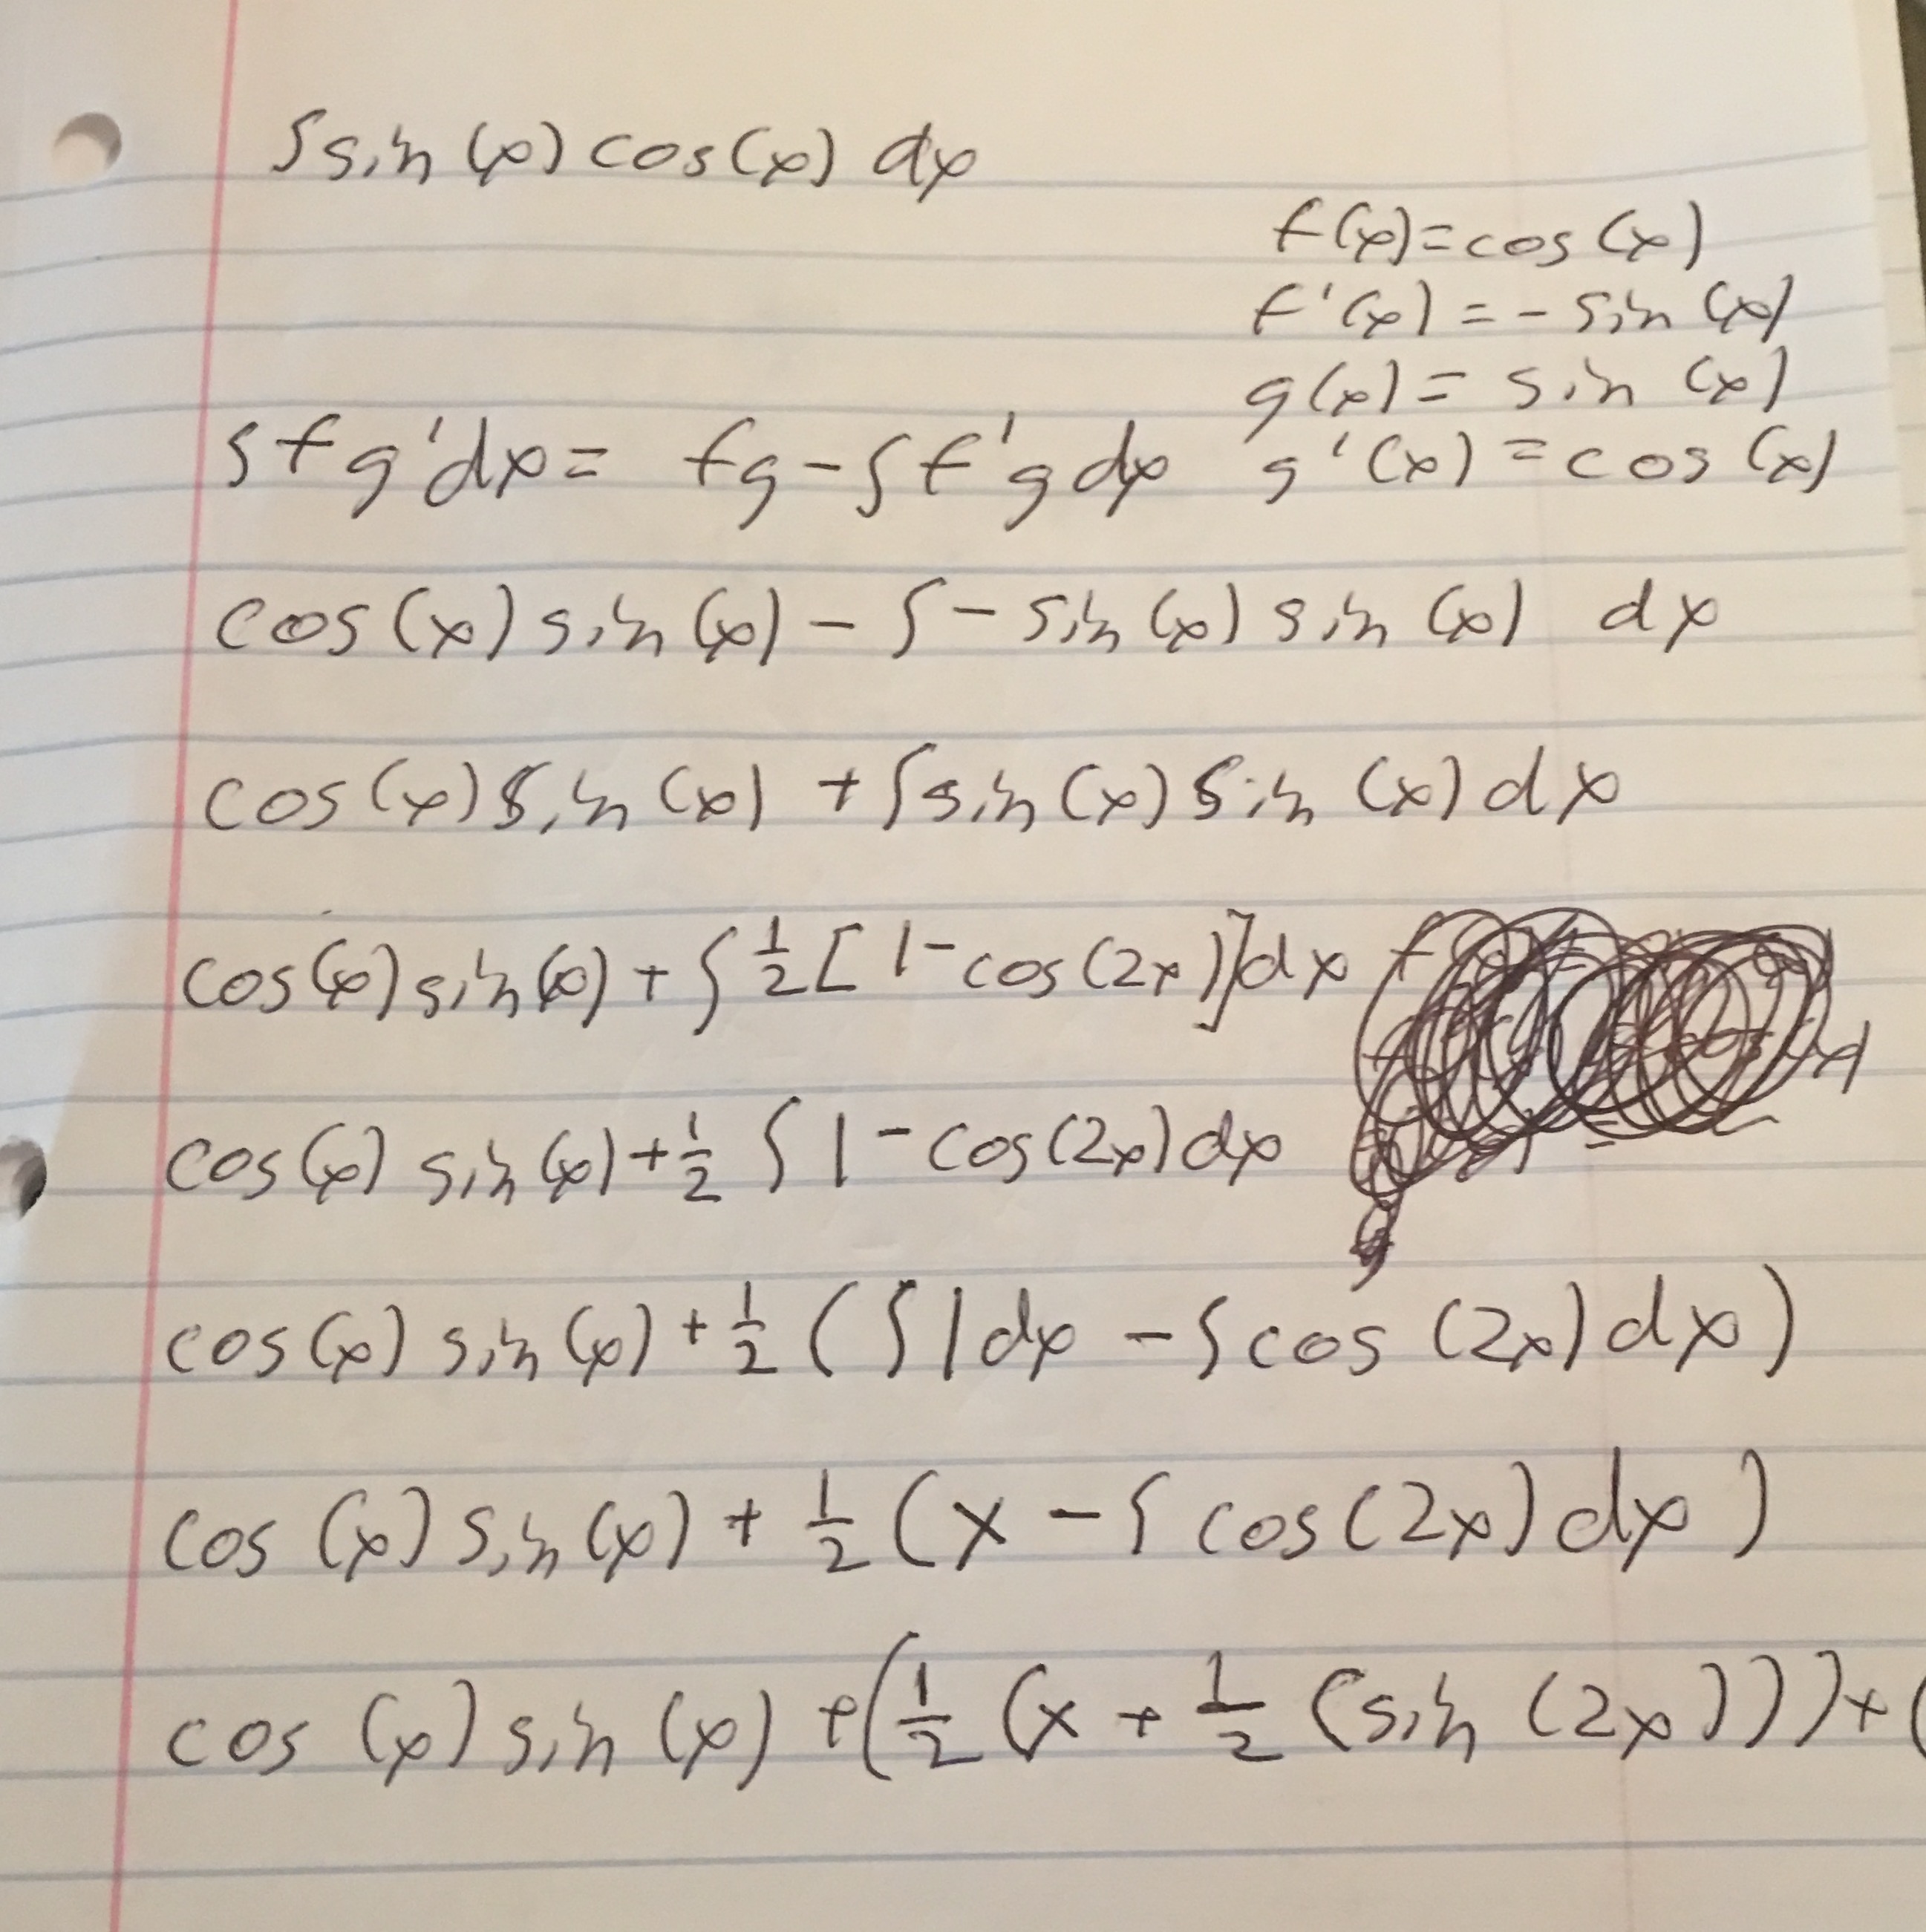 ∫sin(x)cos(x) dx
f(x)=cos(x)
f'(x)=-sin(x)
g(x)=sin(x)
∫fg'dx= fg-∫f'gdx g'(x)=cos(x)
cos(x)sin(x)-∫-sin(x)sin(x) dx
cos(x)sin(x)+∫sin(x)sin(x)dx
cos(x)sin(x)+∫1/2[1-cos(2x)]dx
cos(x)sin(x)+1/2∫1-cos(2x)dx
cos(x)sin(x)+1/2(∫1dx-∫cos(2x)dx)
cos(x)sin(x)+1/2(x-∫cos(2x)dx)
cos(x)sin(x)+(1/2(x+1/2(sin(2x))))+